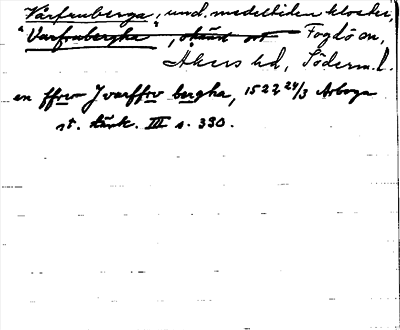 Vårfruberga, und. medeltiden kloster,
"Vårfrubergha", okänt ort Fogdö sn,
Åkers hd, Söderm. l.
en ffrw J varffrv bergha, 1522 24/3 Arboga
st. tänk. III s. 330.